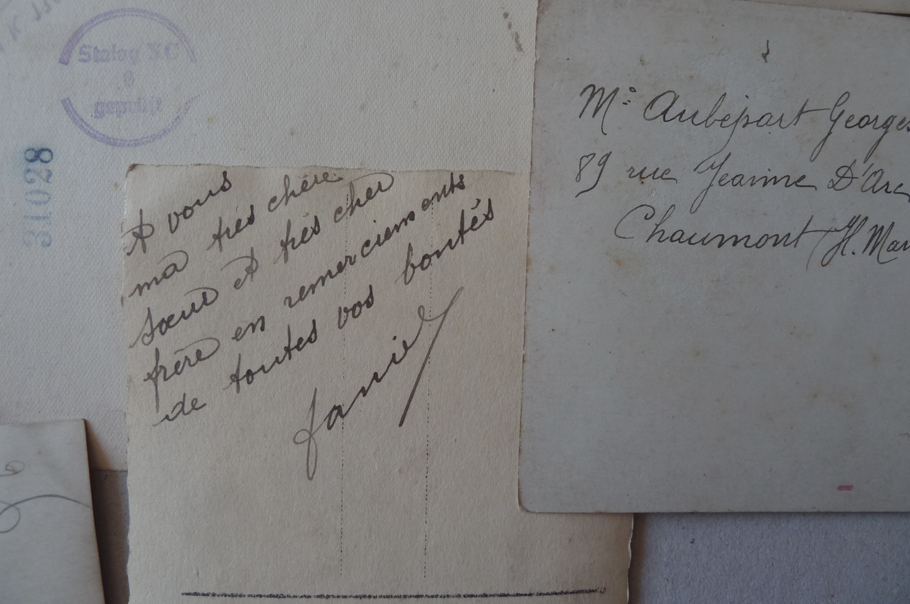 Stalag XC
9
geprüft
31028
A vous
ma très chère
sœur et très cher
frère en remerciements
de toutes vos bontés
fanie
Mr Aubépart Georges
89 rue Jeanne D'Arc
Chaumont H. Mar